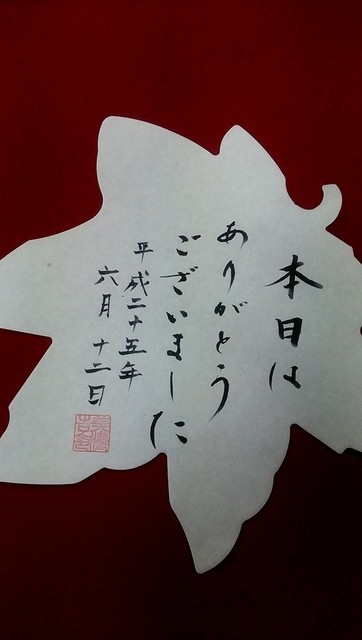 本日は
ありがとう
ございました
平成二十五年
六月十二日